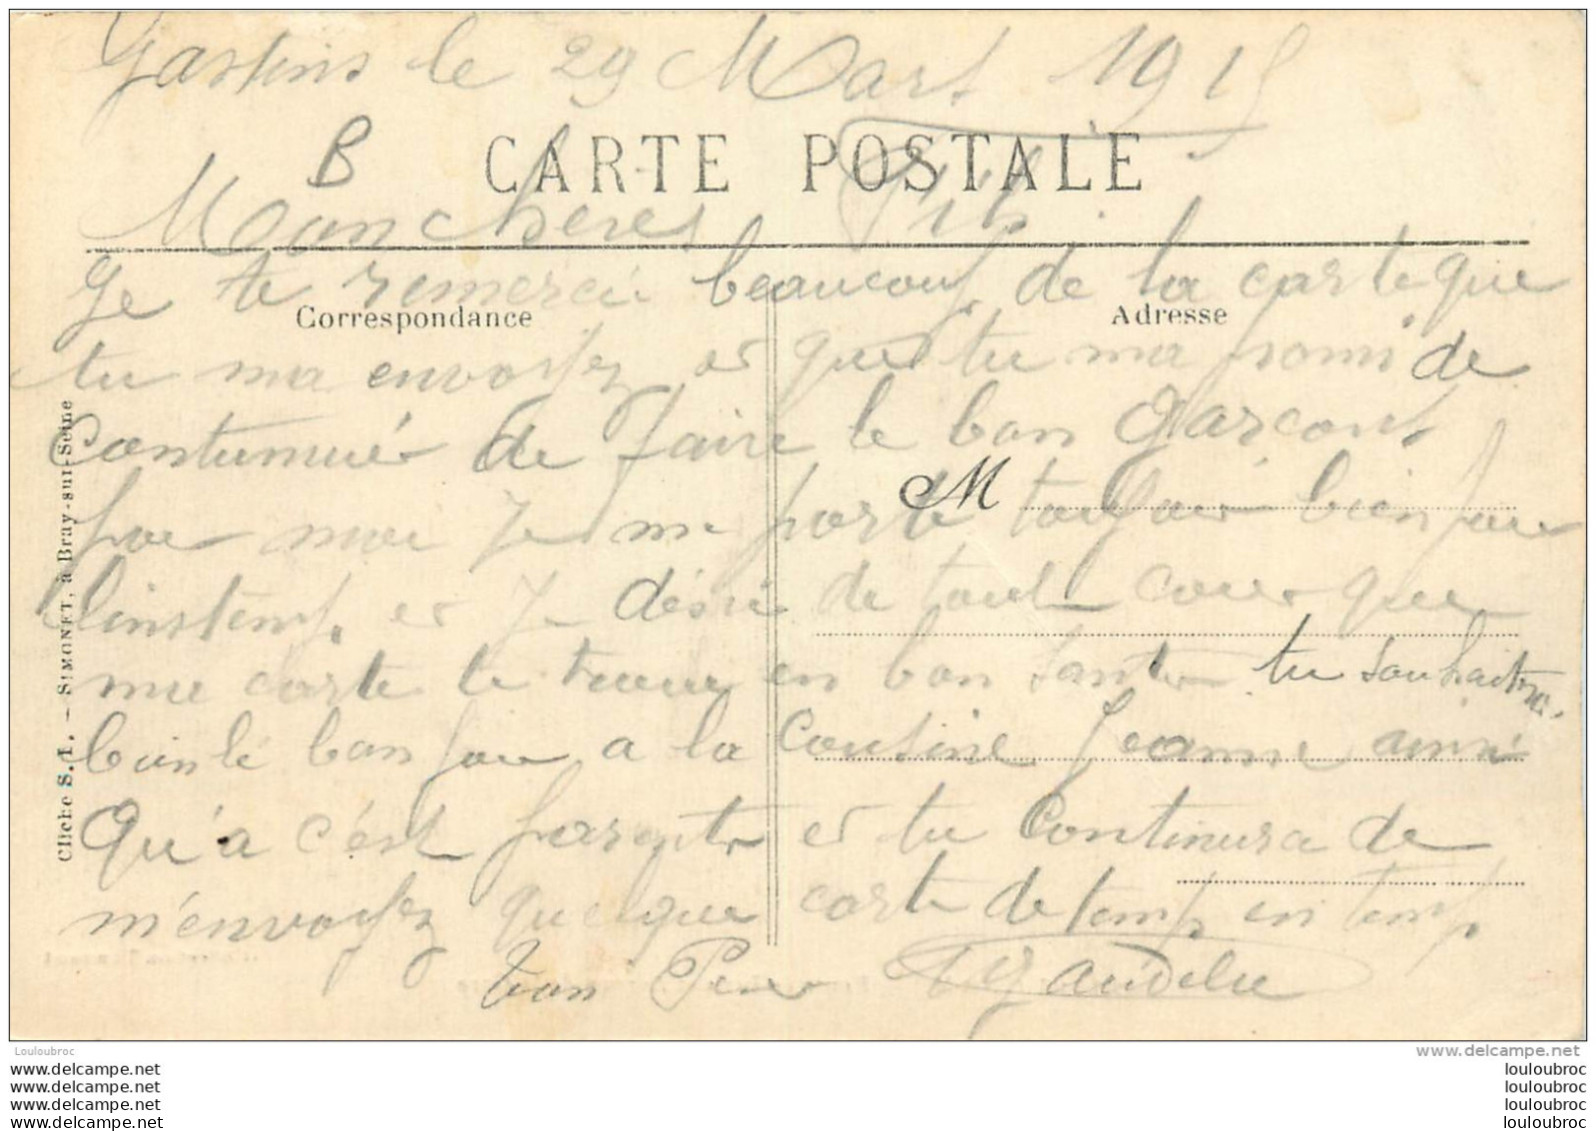 Gastins le 29 Mars 1915
B
CARTE POSTALE
Mon cheres Fils
Je te remercie beaucoup de la carte que
Correspondance
Adresse
tu ma envoyez et que tu ma promi de
contunuér de faire le bon garcont
M
pour moi Je me porte toujour bien pour
linstemp et Je désire de tout coeur que
ma carte te trouve en bon santer tu souhaitera
bien lé bonjour a la Cousine Jeanne ainsi
Qu'a c'est parentr et tu Continura de
m'envoyez quelque carte de temp en temp
ton Pere Gaudelu
Cliché S. I. — SIMONET, à Bray-sur-Seine
Louloubroc
www.delcampe.net
www.delcampe.net
www.delcampe.net
www.delcampe.net
www.delcampe.net
louloubroc
louloubroc
louloubroc
louloubroc